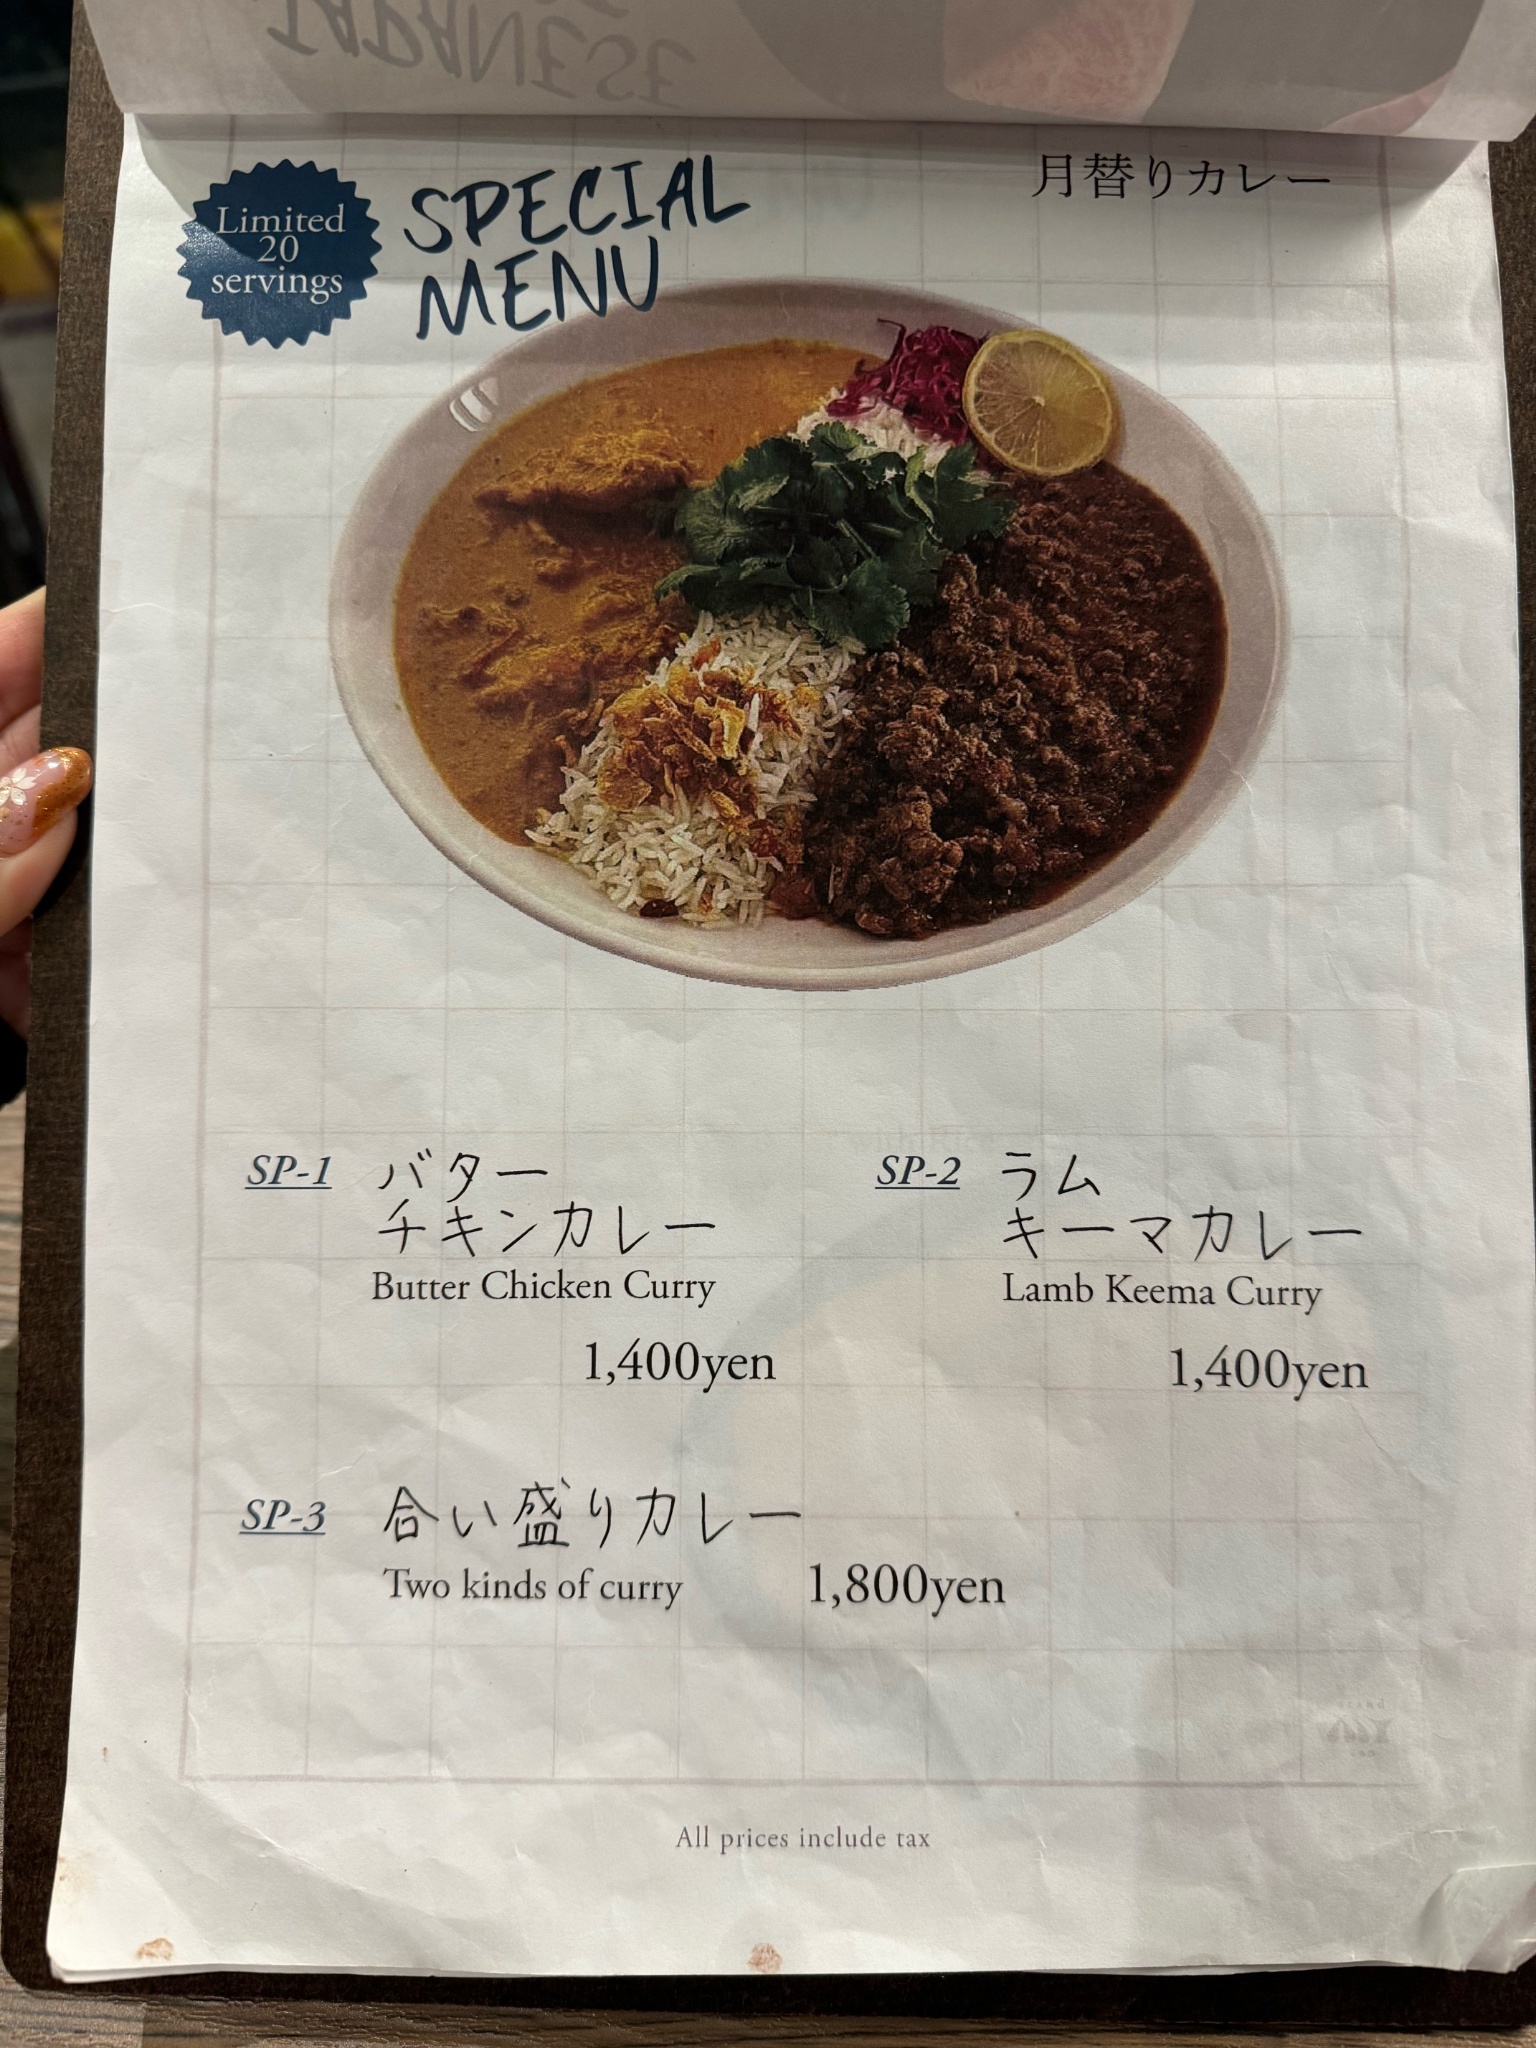 JAPANESE
Limited
20
servings
SPECIAL
MENU
月替りカレー
SP-1 バター
チキンカレー
Butter Chicken Curry
1,400yen
SP-2 ラム
キーマカレー
Lamb Keema Curry
1,400yen
SP-3 合い盛りカレー
Two kinds of curry 1,800yen
All prices include tax